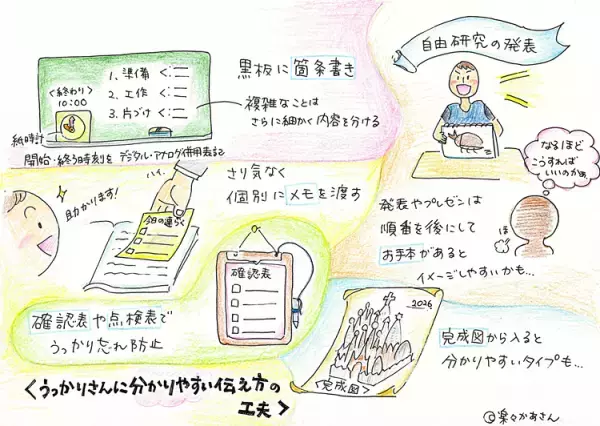 黒板に箇条書き
<終わり>
10:00
1. 準備 <:
2. 工作 <:
3. 片づけ <:
紙時計
複雑なことは
さらに細かく内容を分ける
開始・終了時刻をデジタル・アナログ併用表記
自由研究の発表
なるほど
こうすれば
いいのかぁ
ほぉ
発表やプレゼンは
順番を後にして
お手本があると
イメージしやすいかも…
さり気なく
個別にメモを渡す
ハイ、
助かります!
今日の連らく
確認表
確認表や点検表で
うっかり忘れ防止
2026
<完成図>
完成図から入ると
分かりやすいタイプも…
<うっかりさんに分かりやすい伝え方の
工夫>
©楽々かあさん